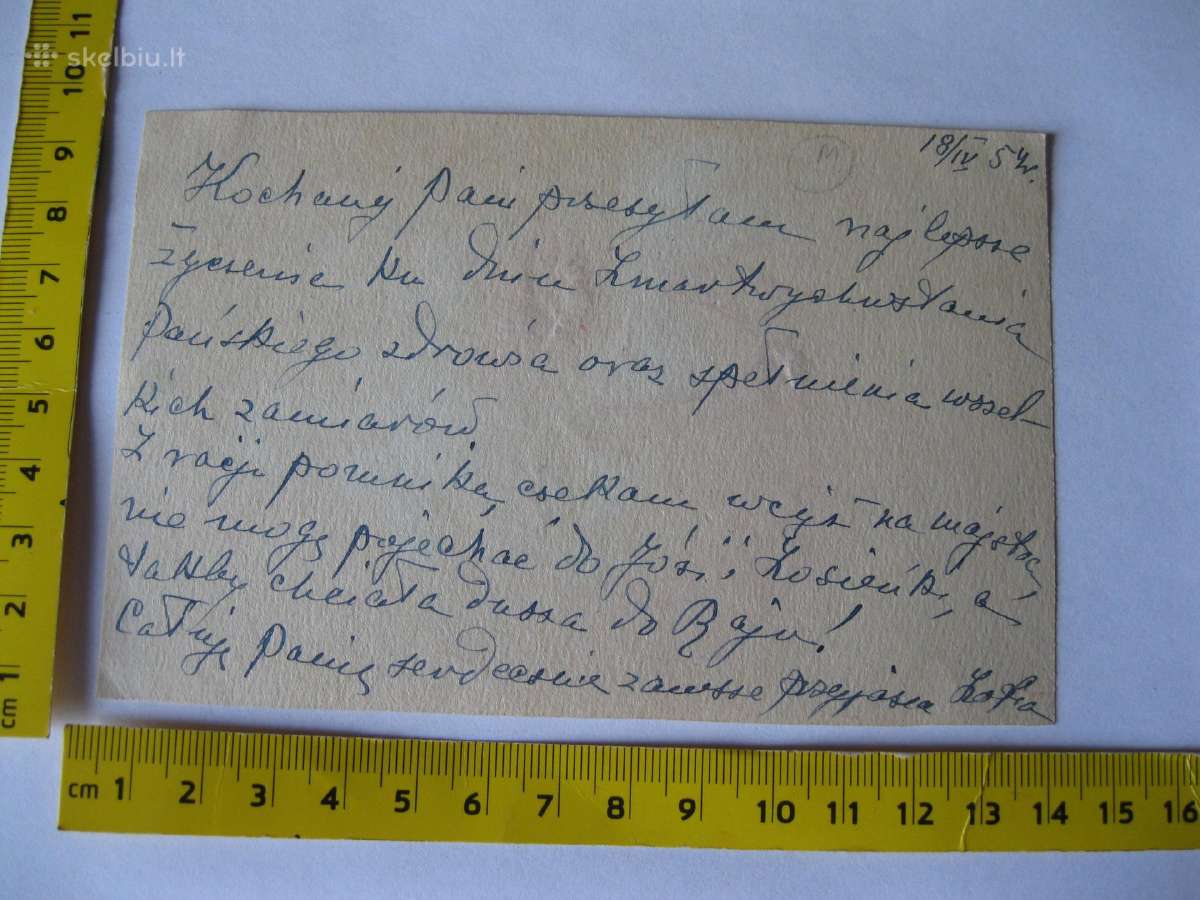 skelbiu.lt
18/IV 54r.
M
Kochanej Pani przesyłam najlepsze
życzenia ku dniu Zmartwychwstania
Pańskiego zdrowia oraz spełnienia wszel-
kich zamiarów.
Z racji pomnika, czekam wciąż na majstra,
nie mogę pojechać do Józi i Zosieńki, a
takby chciała dusza do Raju!
Całuję Panią serdecznie zawsze Zofia
cm 1 2 3 4 5 6 7 8 9 10 11
cm 1 2 3 4 5 6 7 8 9 10 11 12 13 14 15 16